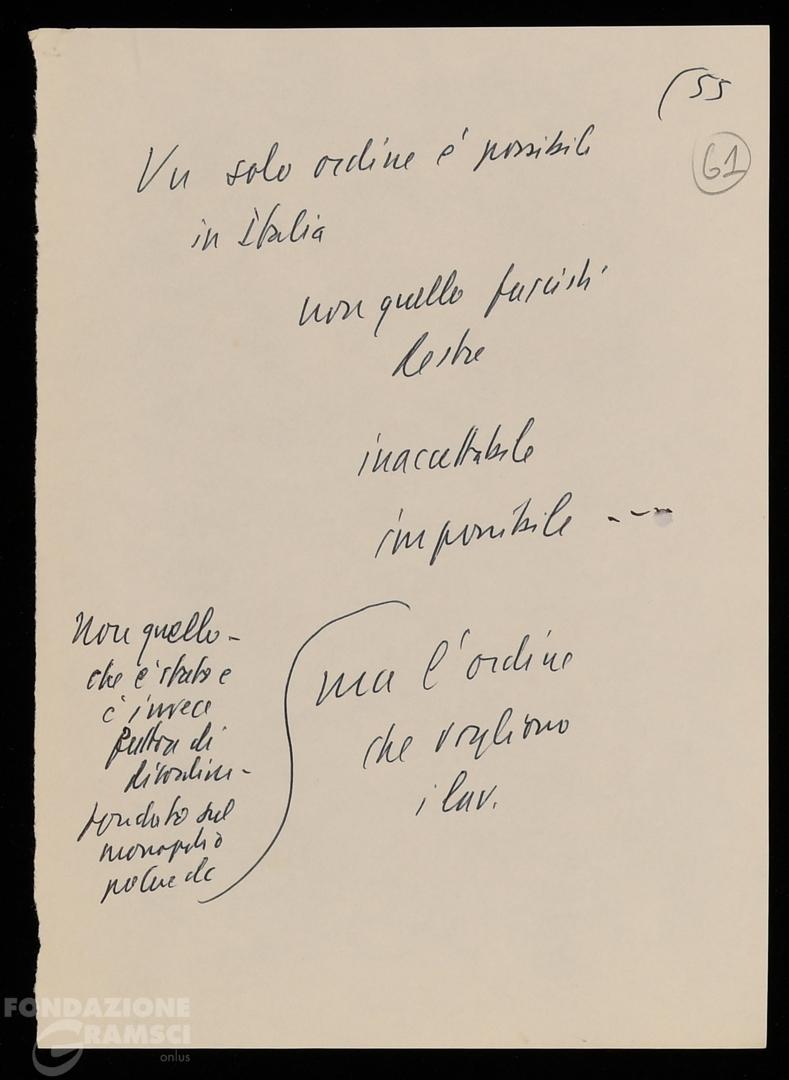 (55
61
Un solo ordine è possibile
in Italia
non quello fascisti
destre
inaccettabile
impossibile ---
Non quello -
che è stato e
è invece
di
disordine -
fondato sul
monopolio
potere dc
ma l'ordine
che vogliono
i lav.
FONDAZIONE
GRAMSCI
onlus